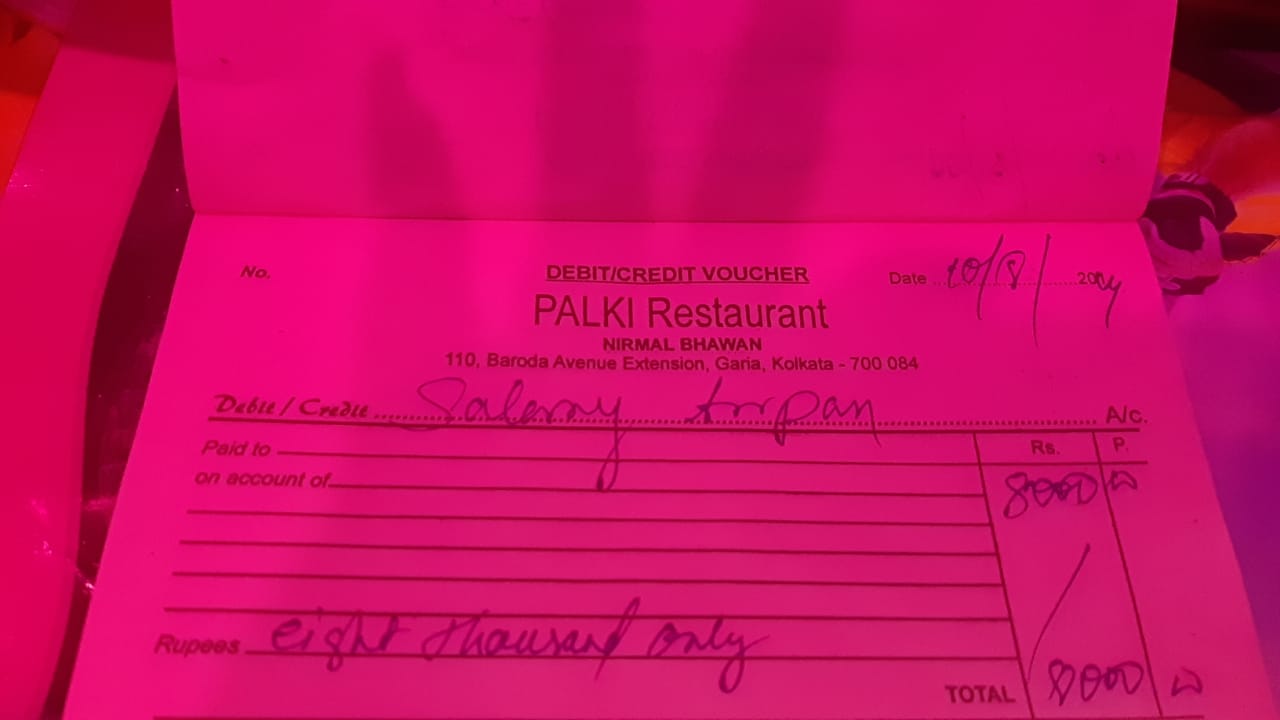 No. DEBIT/CREDIT VOUCHER Date 10/8/2024
PALKI Restaurant
NIRMAL BHAWAN
110, Baroda Avenue Extension, Garia, Kolkata - 700 084
Debit / Credit Salary Arpan A/c.
Paid to Rs. P.
on account of 8000 00
Rupees eight thousand only
TOTAL 8000 00